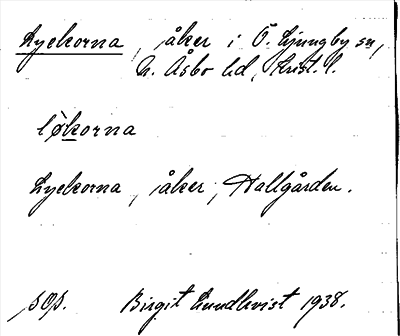 Lyckorna, åker i Ö. Ljungby sn,
N. Åsbo hd, Krist. l.
løkorna
Lyckorna, åker, Hallgården.
Birgit Lundkvist 1938.